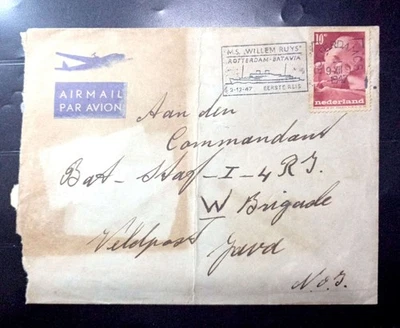 AIRMAIL
PAR AVION
M.S. "WILLEM RUYS"
ROTTERDAM-BATAVIA
-12-47 EERSTE REIS
10
nederland
Aan den
Commandant
Bat - Staf - I - 4 R.I.
W Brigade
Veldpost Java
N.O.I.